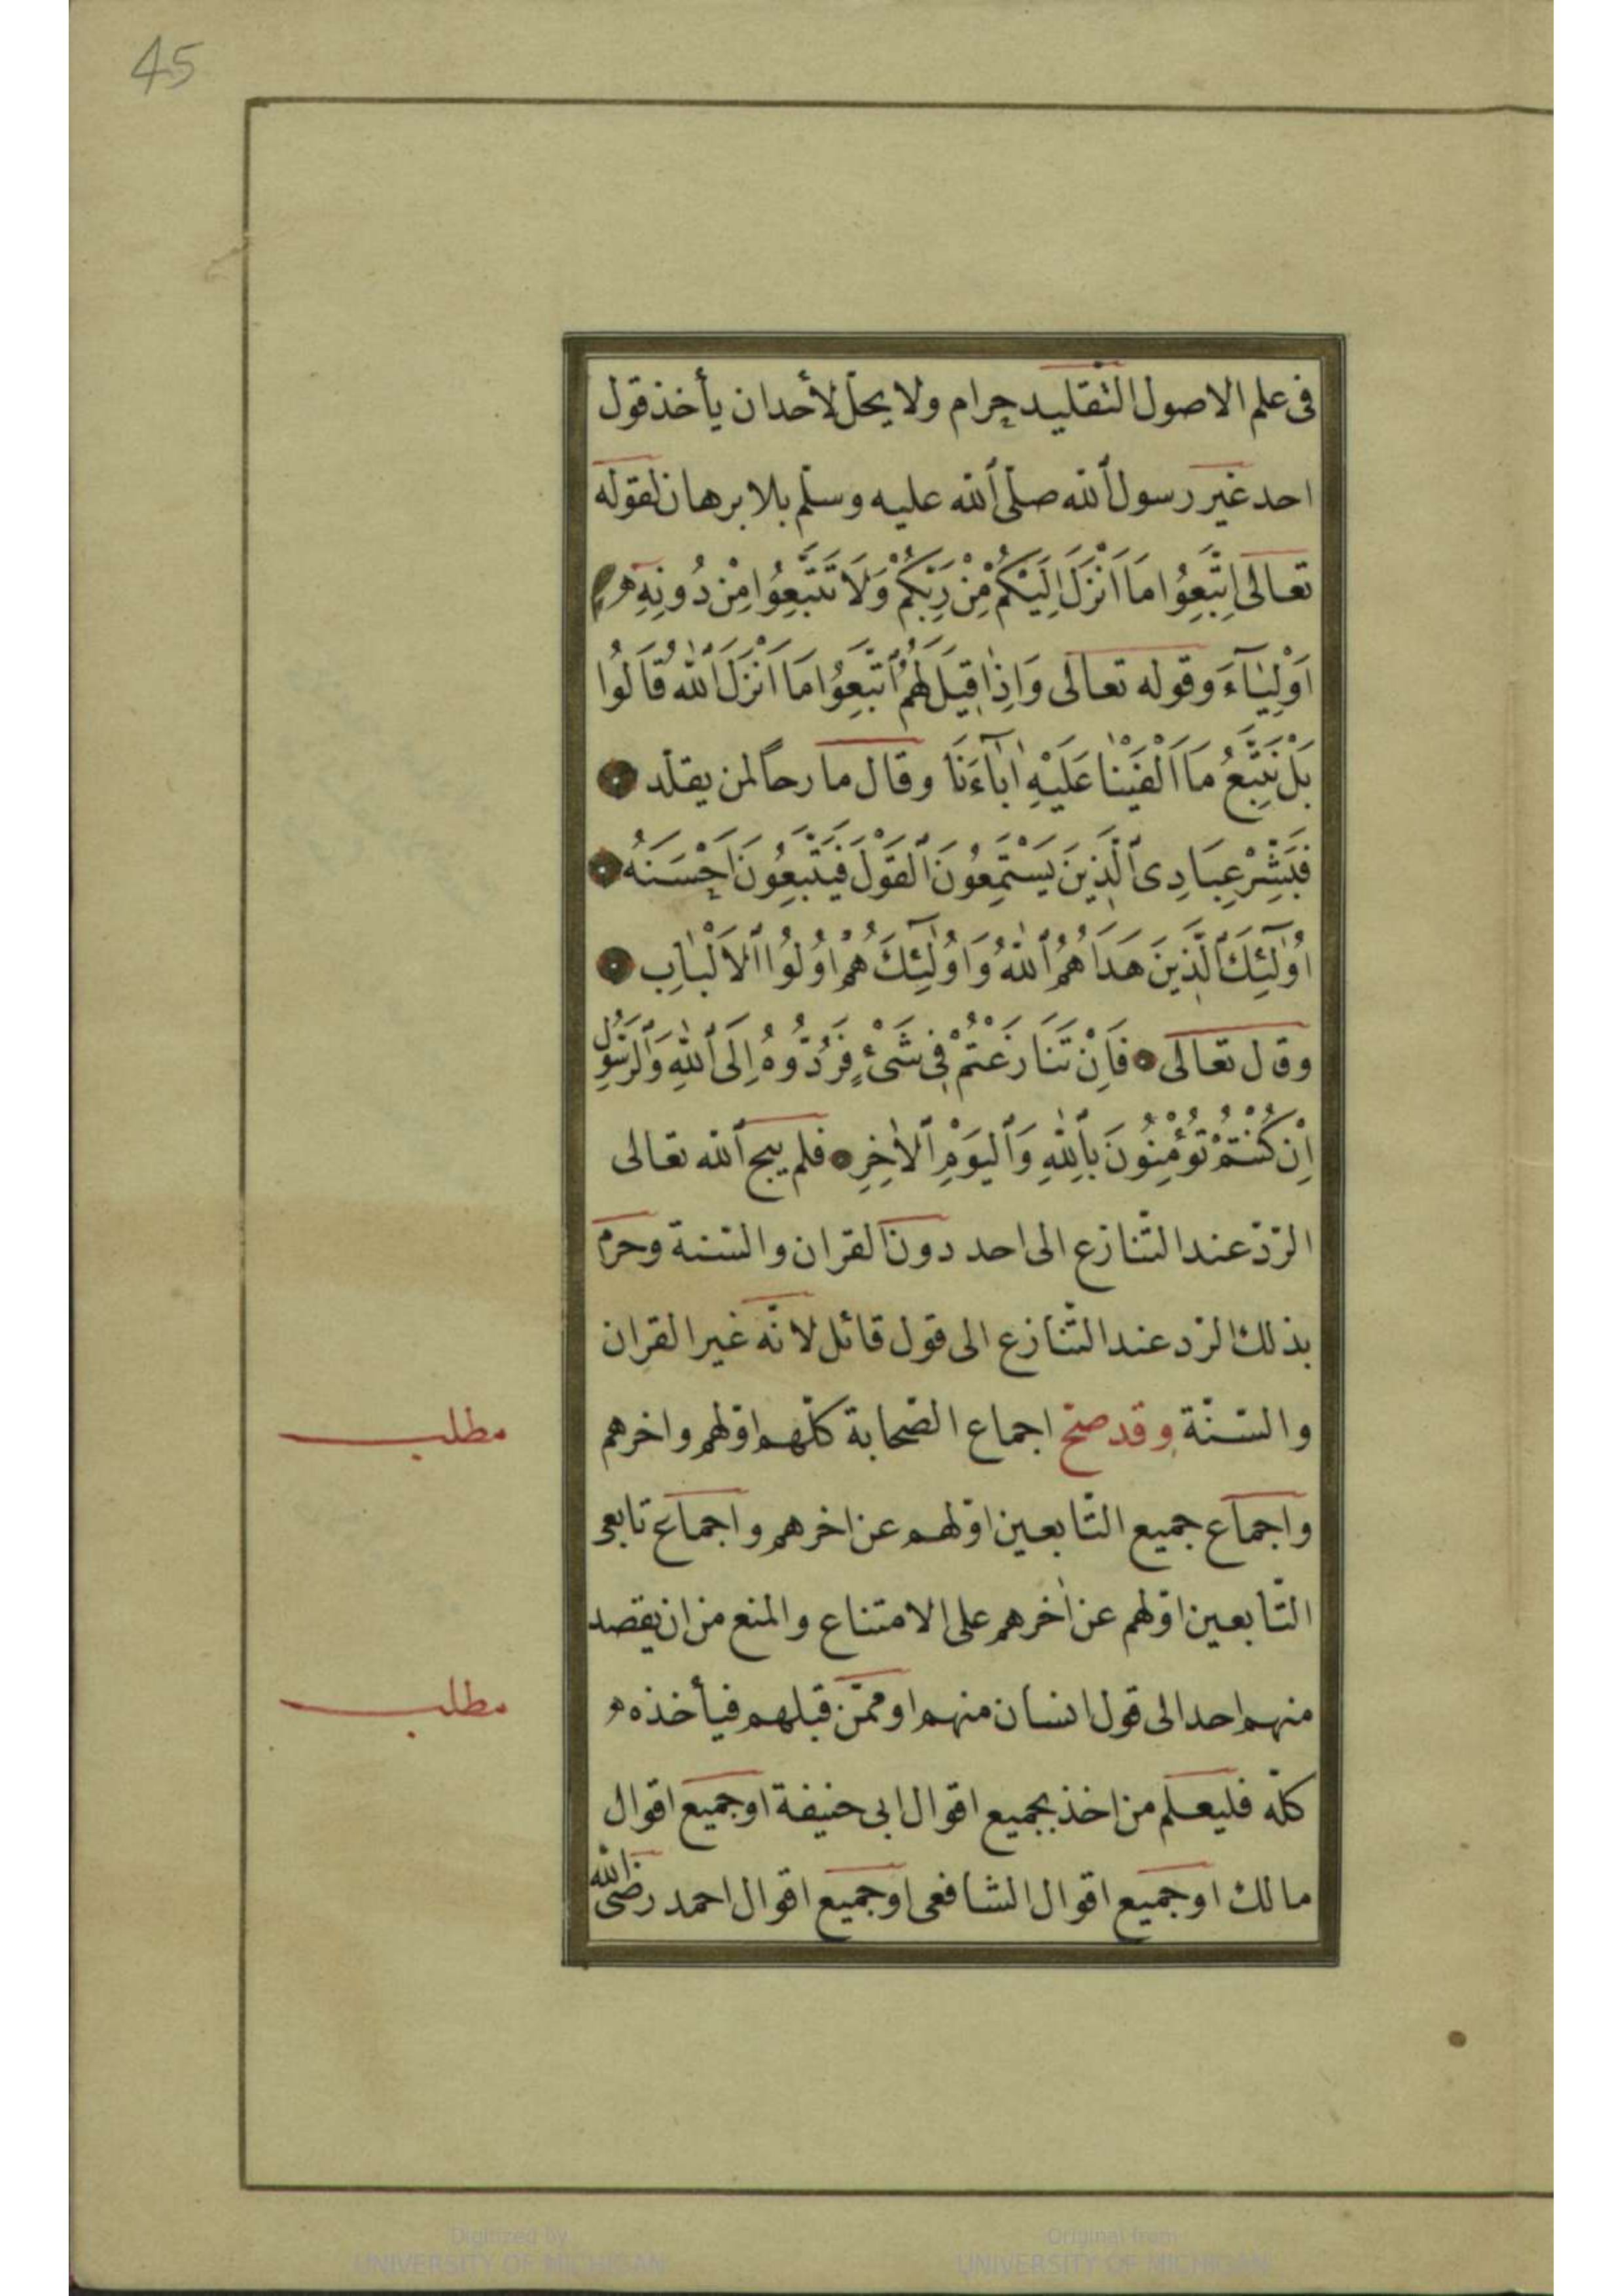 45
فى علم الاصول التقليد حرام ولا يحلّ لأحد ان يأخذ قول
احد غير رسول الله صلّى الله عليه وسلّم بلا برهان لقوله
تعالى اِتَّبِعُوا مَا اَنْزَلَ اِلَيْكُمْ مِنْ رَبِّكُمْ وَلَا تَتَّبِعُوا مِنْ دُونِهِ
اَوْلِيَٓاءَ وقوله تعالى وَاِذَا قِيلَ لَهُمُ اتَّبِعُوا مَا اَنْزَلَ اللّٰهُ قَالُوا
بَلْ نَتَّبِعُ مَا اَلْفَيْنَا عَلَيْهِ اٰبَٓاءَنَا وقال مارحاً لمن يقلّد
فَبَشِّرْ عِبَادِى الَّذِينَ يَسْتَمِعُونَ الْقَوْلَ فَيَتَّبِعُونَ اَحْسَنَهُ
اُولٰٓئِكَ الَّذِينَ هَدَاهُمُ اللّٰهُ وَاُولٰٓئِكَ هُمْ اُولُوا الْاَلْبَابِ
وقال تعالى فَاِنْ تَنَازَعْتُمْ فِى شَىْءٍ فَرُدُّوهُ اِلَى اللّٰهِ وَالرَّسُولِ
اِنْ كُنْتُمْ تُؤْمِنُونَ بِاللّٰهِ وَالْيَوْمِ الْاٰخِرِ فلم يبح الله تعالى
الرّدّ عند التّنازع الى احد دون القران والسّنة وحرم
بذلك الرّد عند التّنازع الى قول قائل لانّه غير القران
والسّنّة وقد صحّ اجماع الصّحابة كلّهم اوّلهم واخرهم
مطلب
واجماع جميع التّابعين اوّلهم عن اخرهم واجماع تابعى
التّابعين اوّلهم عن اٰخرهم على الامتناع والمنع من ان يقصد
منهم احد الى قول انسان منهم او ممّن قبلهم فيأخذه
مطلب
كلّه فليعلم من اخذ بجميع اقوال ابى حنيفة او جميع اقوال
مالك او جميع اقوال الشافعى او جميع اقوال احمد رضى الله
Digitized by
UNIVERSITY OF MICHIGAN
Original from
UNIVERSITY OF MICHIGAN